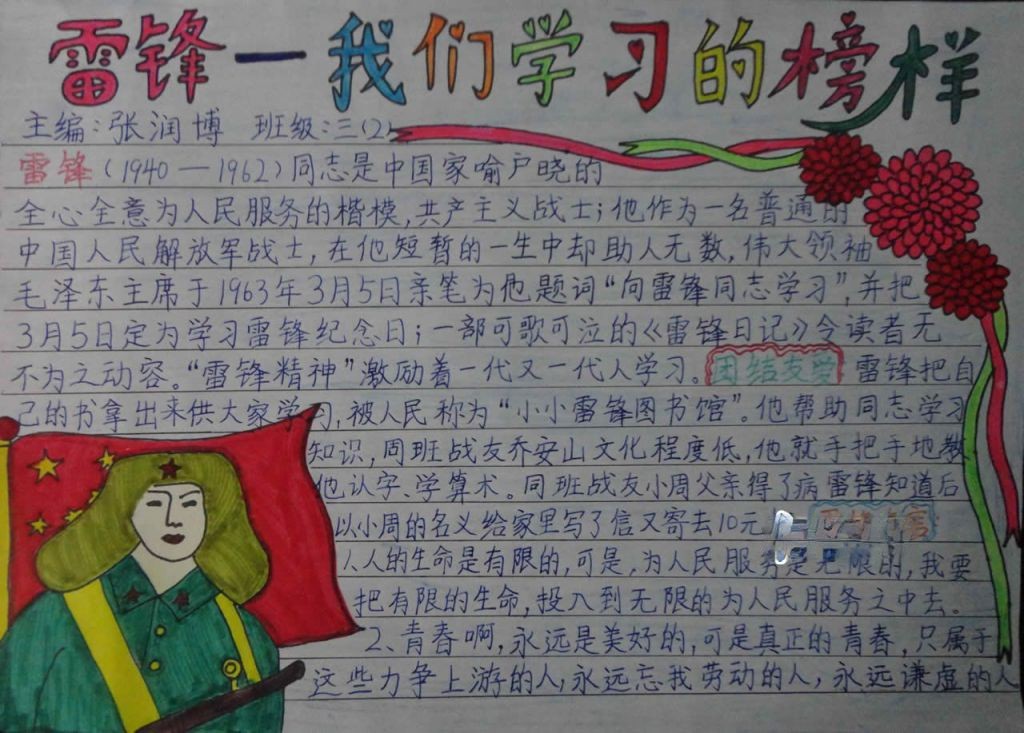 雷锋一我们学习的榜样
主编:张润博 班级:三(2)
雷锋(1940—1962)同志是中国家喻户晓的
全心全意为人民服务的楷模,共产主义战士;他作为一名普通的
中国人民解放军战士,在他短暂的一生中却助人无数,伟大领袖
毛泽东主席于1963年3月5日亲笔为他题词“向雷锋同志学习”,并把
3月5日定为学习雷锋纪念日;一部可歌可泣的《雷锋日记》令读者无
不为之动容。“雷锋精神”激励着一代又一代人学习。团结友爱 雷锋把自
己的书拿出来供大家学习,被人民称为“小小雷锋图书馆”。他帮助同志学习
知识,同班战友乔安山文化程度低,他就手把手地教
他认字、学算术。同班战友小周父亲得了病雷锋知道后
以小周的名义给家里写了信又寄去10元
人的生命是有限的,可是,为人民服务是无限的,我要
把有限的生命,投入到无限的为人民服务之中去。
2、青春啊,永远是美好的,可是真正的青春,只属于
这些力争上游的人,永远忘我劳动的人,永远谦虚的人